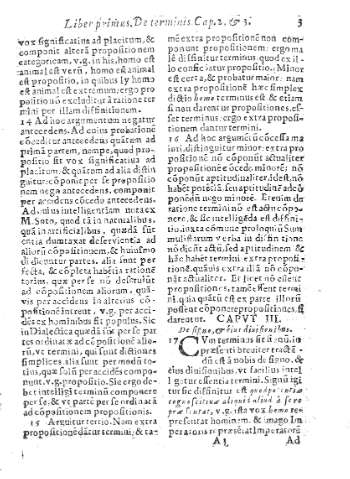 Liber primus, De terminis. Cap. 2. & 3. 3
vox significatiua ad placitum, &
componit alterã propositionem
categoricam, v.g. in his, homo est
animal est verũ, homo est animal
est propositio, in quibus ly homo
est animal est extremum; ergo pro
positio nõ excluditur à ratione ter
mini per illam diffinitionem.
14 Ad hoc argumentum negatur
antecedens. Ad cuius probationẽ
cõceditur antecedens quátum ad
primã partem, nempe, quod pro
positio sit vox significatiua ad
placitum, & quátum ad aliã distin
guitur: cõponit per se propositio
nem nego antecedens, componit
per accidens cõcedo antecedens.
Ad
M. Soto, quòd tã in naturalibus,
quã in artificialibus, quædã sũt
entia dumtaxat deseruientia ad
aliorũ cõpositionem, & huiusmo
di dicuntur partes, alia sunt per
fecta, & cõpleta habẽtia rationẽ
totius, quæ per se nõ destruũtur
ad cõpositionem aliorum, quã-
uis per accidens in alterius cõ-
positionẽ intrent, v.g. per acci-
dẽs ex hominibus fit populus. Sic
in Dialectica quædã sũt per se par
tes ordinatæ ad cõpositionẽ alio-
rũ, vt termini, qui sunt dictiones
simplices, alia sunt per modũ to-
tius, quæ solũ per accidẽs compo
nunt, v.g. propositio. Sic ergo de-
bet intelligi terminũ componere
per se, & vt parte per se ordinatã
ad cõpositionem propositionis.
15 Arguitur tertio. Nom extra
propositionẽ dãtur termini, & ta-
mẽ extra propositionem non com
ponunt propositionem: ergo ma
lè diffinitur terminus quòd ex il-
lo conficiatur propositio. Minor
est certa, & probatur maior: nam
extra propositionẽ hæc simplex
dictio homo terminus est & etiam
si non darentur propositiones, es-
set terminus: ergo extra proposi-
tionem dantur termini.
16 Ad hoc argumẽtũ cõcessa ma
iori, distinguitur minor: extra pro
positionẽ nõ cõponũt actualiter
propositionẽ cõcedo minorẽ: nõ
cõponũt aptitudinaliter, id est, nõ
habẽt potẽtiã, seu aptitudinẽ ad cõ
ponẽdũ nego minorẽ. Etenim de
ratione termini nõ est actu cõpo-
nere, & sic intelligẽda est diffini-
tio, iuxta cõmune proloquiũ Sum
mulistarum verba in diffinitione
nõ dicũt actũ, sed aptitudinem &
hãc habẽt termini extra proposi-
tionẽ, quãuis extra illã nõ cõpo-
nãt actualiter. Et licet nõ essent
propositiones, tamẽ essent termi
ni, quia quátũ est ex parte illorũ
possent cõponere propositiones, si
darentur. CAPVT III.
De signo, & eius diuisionibus.
17 CVm terminus sit signũ, in
præsenti breuiter tractã-
dũ est à nobis de signo, &
eius diuisionibus, vt facilius intel
ligatur essentia termini. Signũ igi
tur sic diffinitur est quod potentiæ
cognoscitiuæ aliquid aliud à se re-
præsentat, v.g. ista vox homo rem
presentat hominem, & imago Im
peratoris repræsẽtat Imperatorẽ
A 3 Ad